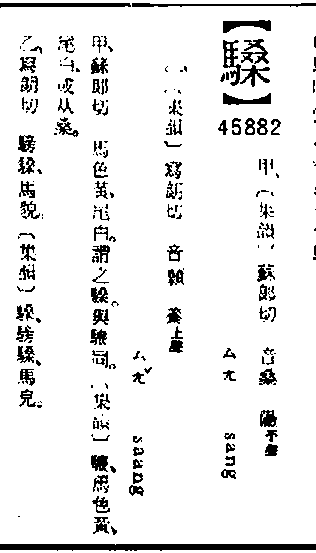 45882
甲、〔集韻〕蘇郎切 音桑 陽平聲
ㄙㄤ sang
乙、〔集韻〕寫朗切 音顙 養上聲
ㄙㄤˇ saang
甲、蘇郎切 馬色黃、尾白。謂之與同。〔集韻〕、馬色黃、
尾白。或从桑。
乙、寫朗切 、馬貌。〔集韻〕、馬皃。